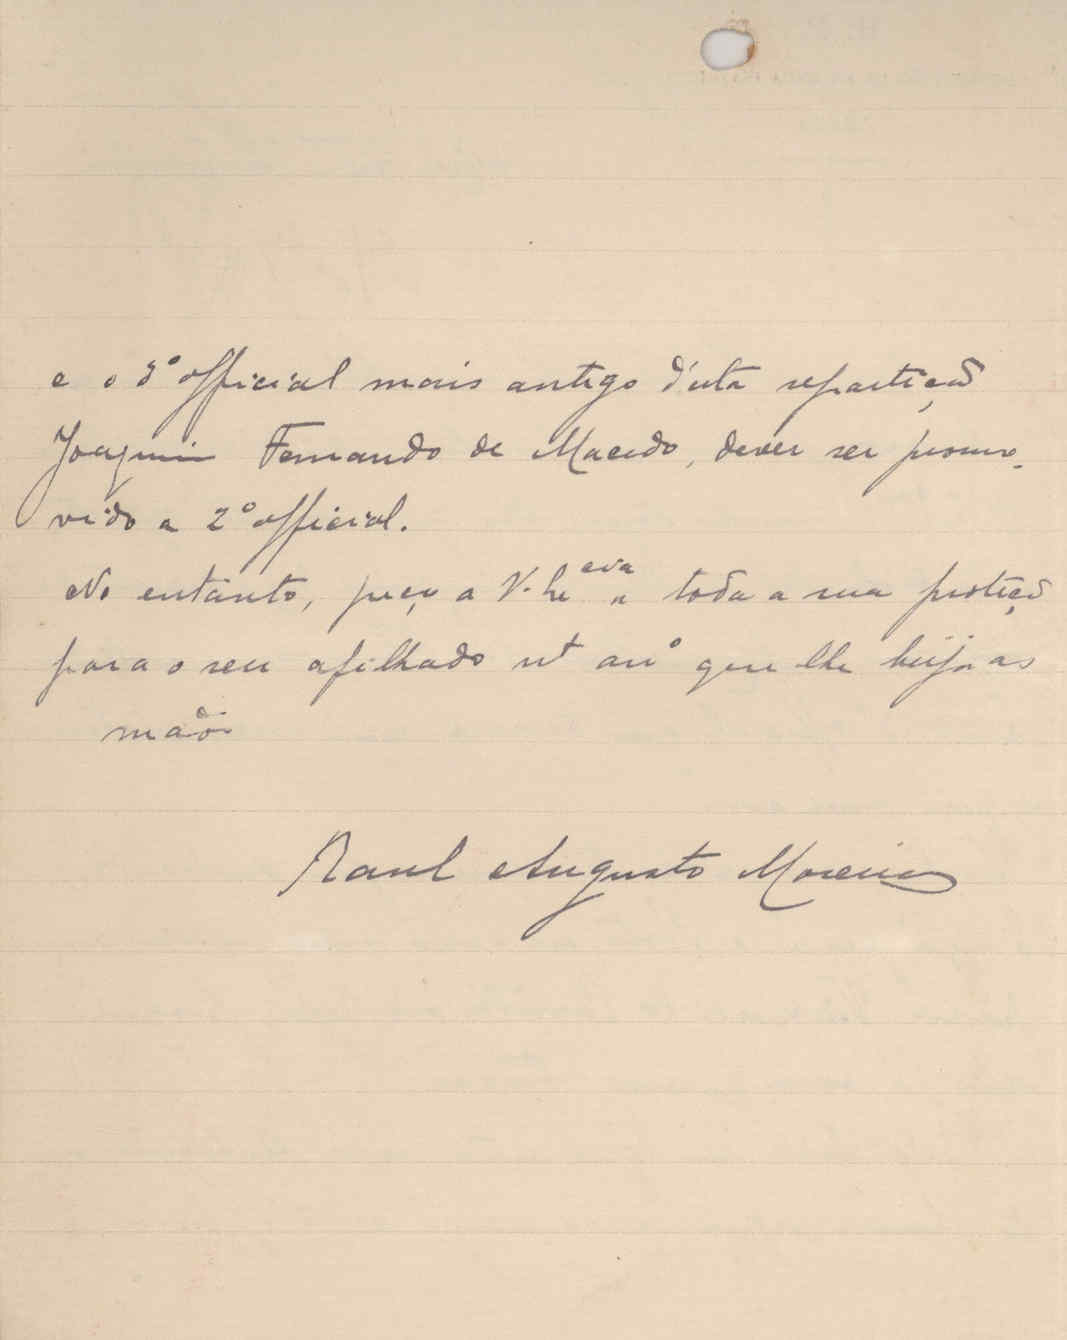 e o 3º official mais antigo d'esta repartição
Joaquim Fernando de Macedo, dever ser promo-
vido a 2º official.
No entanto, peço a V. toda a sua proteção
para o seu afilhado e que lhe beija as
mãos
Raul Augusto Moreira